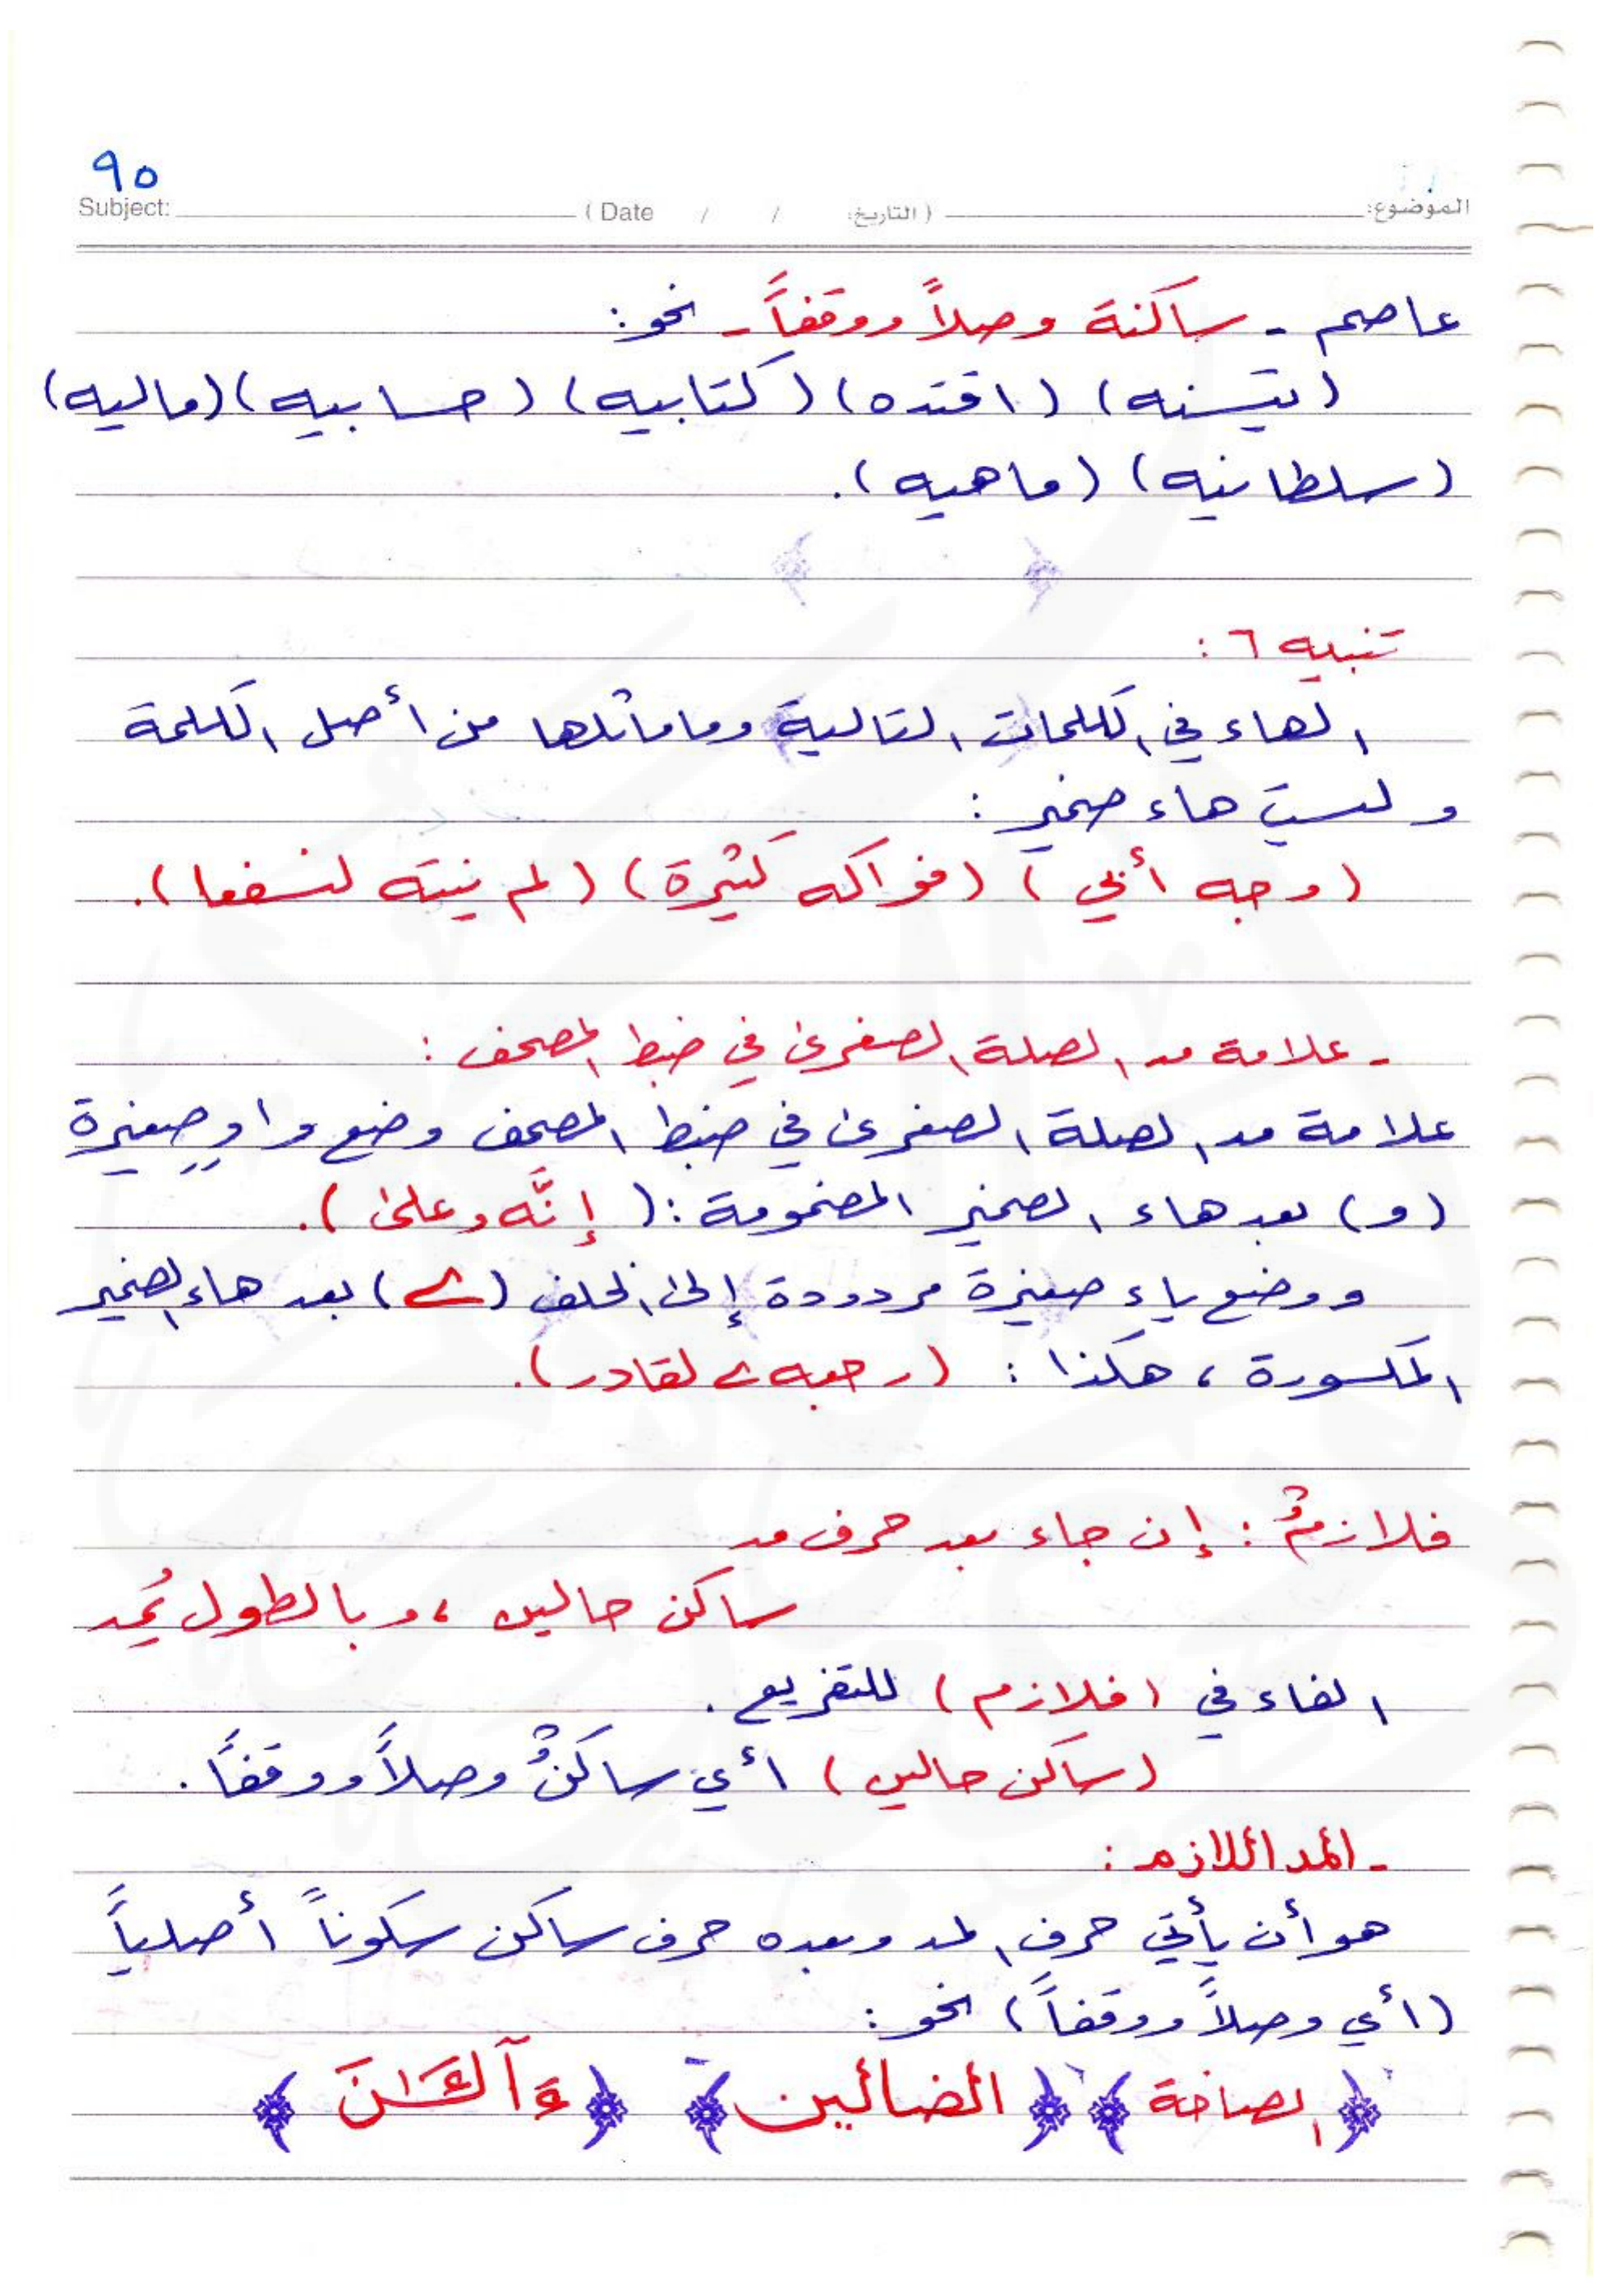 ٩٥
الموضوع: (التاريخ: / / Date) Subject:
عاصم - ساكنة وصلاً ووقفاً - نحو:
(يتسنه) (اقتده) (كتابيه) (حسابيه) (ماليه)
(سلطانيه) (ماهيه).
تنبيه ٦ :
الهاء في الكلمات التالية وما ماثلها من أصل الكلمة
وليست هاء ضمير :
(وجه أبي) (فواكه كثيرة) (لم ينته لنسفعا).
- علامة مد الصلة الصغرى في ضبط المصحف :
علامة مد الصلة الصغرى في ضبط المصحف وضع واوٍ صغيرة
(و) بعد هاء الضمير المضمومة : (إنَّه و على).
ووضع ياء صغيرة مردودة إلى الخلف (ے) بعد هاء الضمير
المكسورة ، هكذا : (رجعه ے لقادر).
فلازمٌ : إن جاء بعد حرف مد
ساكن حالين ، وبالطول يُمد
الفاء في (فلازم) للتفريع .
(ساكن حالين) أي ساكنٌ وصلاً ووقفاً .
- المد اللازم :
هو أن يأتي حرف المد وبعده حرف ساكن سكوناً أصلياً
(أي وصلاً ووقفاً) نحو :
﴿الصاخة﴾ ﴿الضالين﴾ ﴿ءآلـَٔـٰنَ﴾